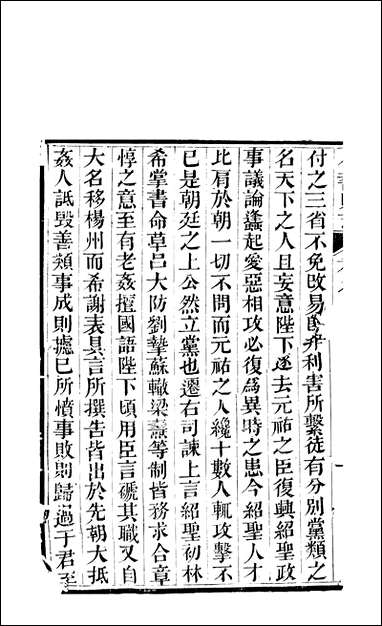 付之三省不免改易即非利害所繫徒有分別黨類之
名天下之人且妄意陛下遂去元祐之臣復興紹聖政
事議論蠭起愛惡相攻必復為異時之患今紹聖人才
比肩於朝一切不問而元祐之人纔十數人輒攻擊不
已是朝廷之上公然立黨也遷右司諫上言紹聖初林
希掌書命草呂大防劉摯蘇轍梁燾等制皆務求合章
惇之意至有老姦擅國語陛下頃用臣言褫其職又自
大名移楊州而希謝表具言所撰告皆出於先朝大抵
姦人詆毀善類事成則攄已所憤事敗則歸過于君至